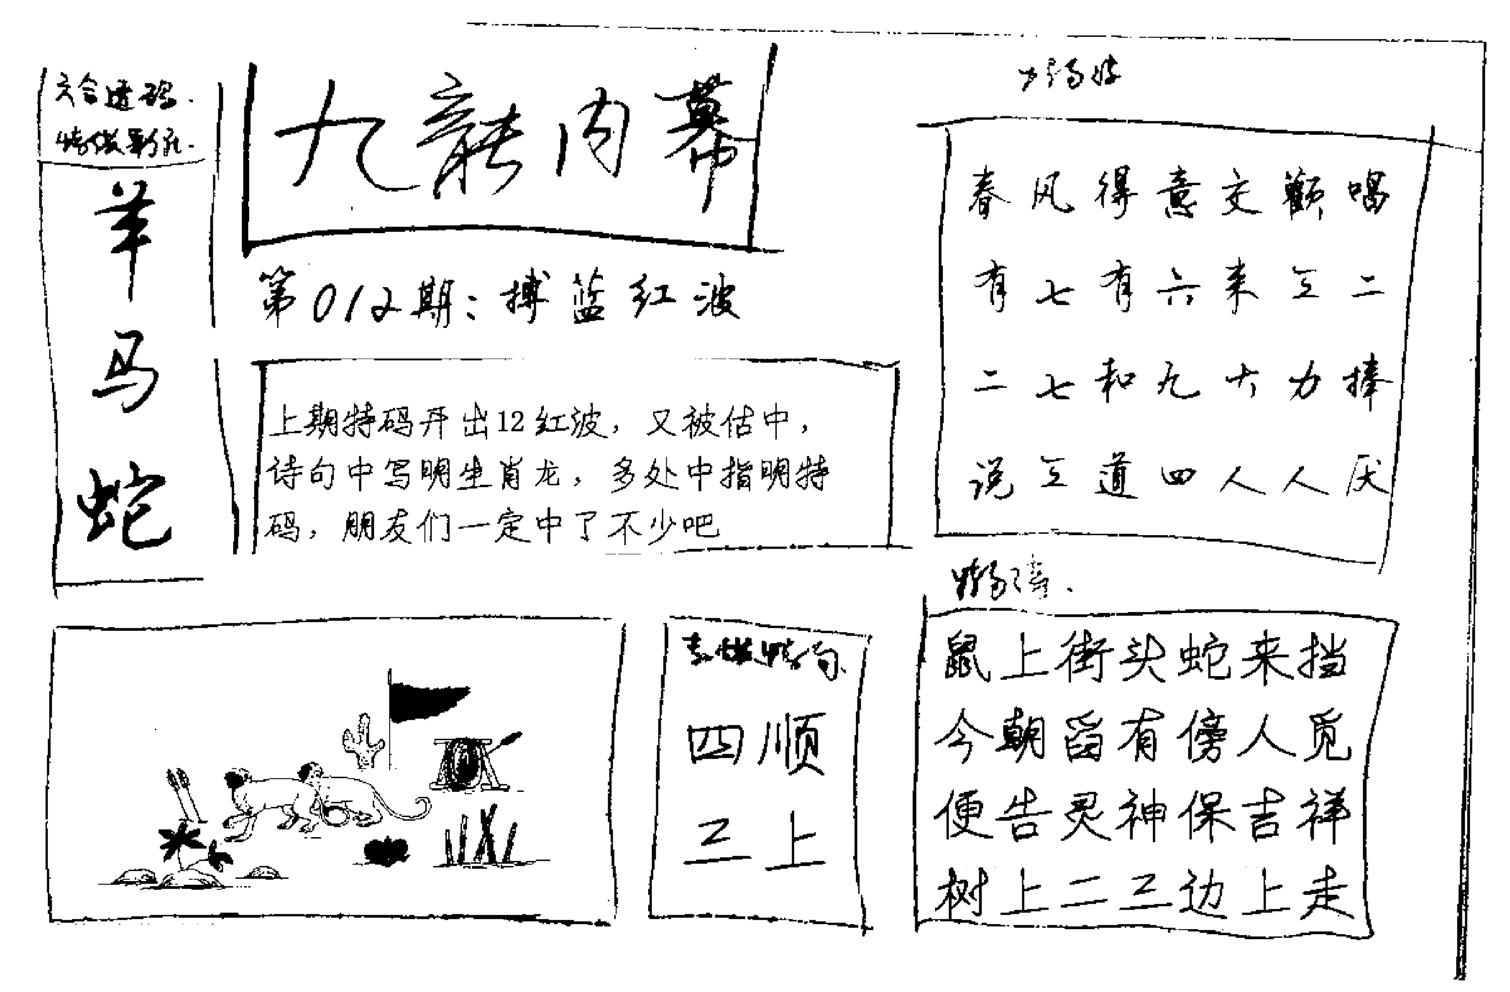 六合透码
羊
马
蛇
九龙内幕
第012期：搏蓝红波
上期特码开出12红波，又被估中，
诗句中写明生肖龙，多处中指明特
码，朋友们一定中了不少吧
春风得意交颧喝
有七有六来三二
二七和九大力捧
说三道四人人厌
四顺
三上
鼠上街头蛇来挡
今朝留有傍人觅
便告灵神保吉祥
树上二三边上走